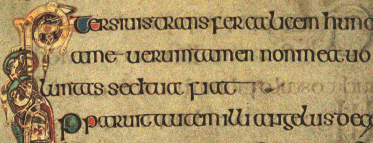 Pater si uis transfer calicem hunc
a me uerumtamen non mea uo
luntas sed tua fiat
Apparuit autem illi angelus de c